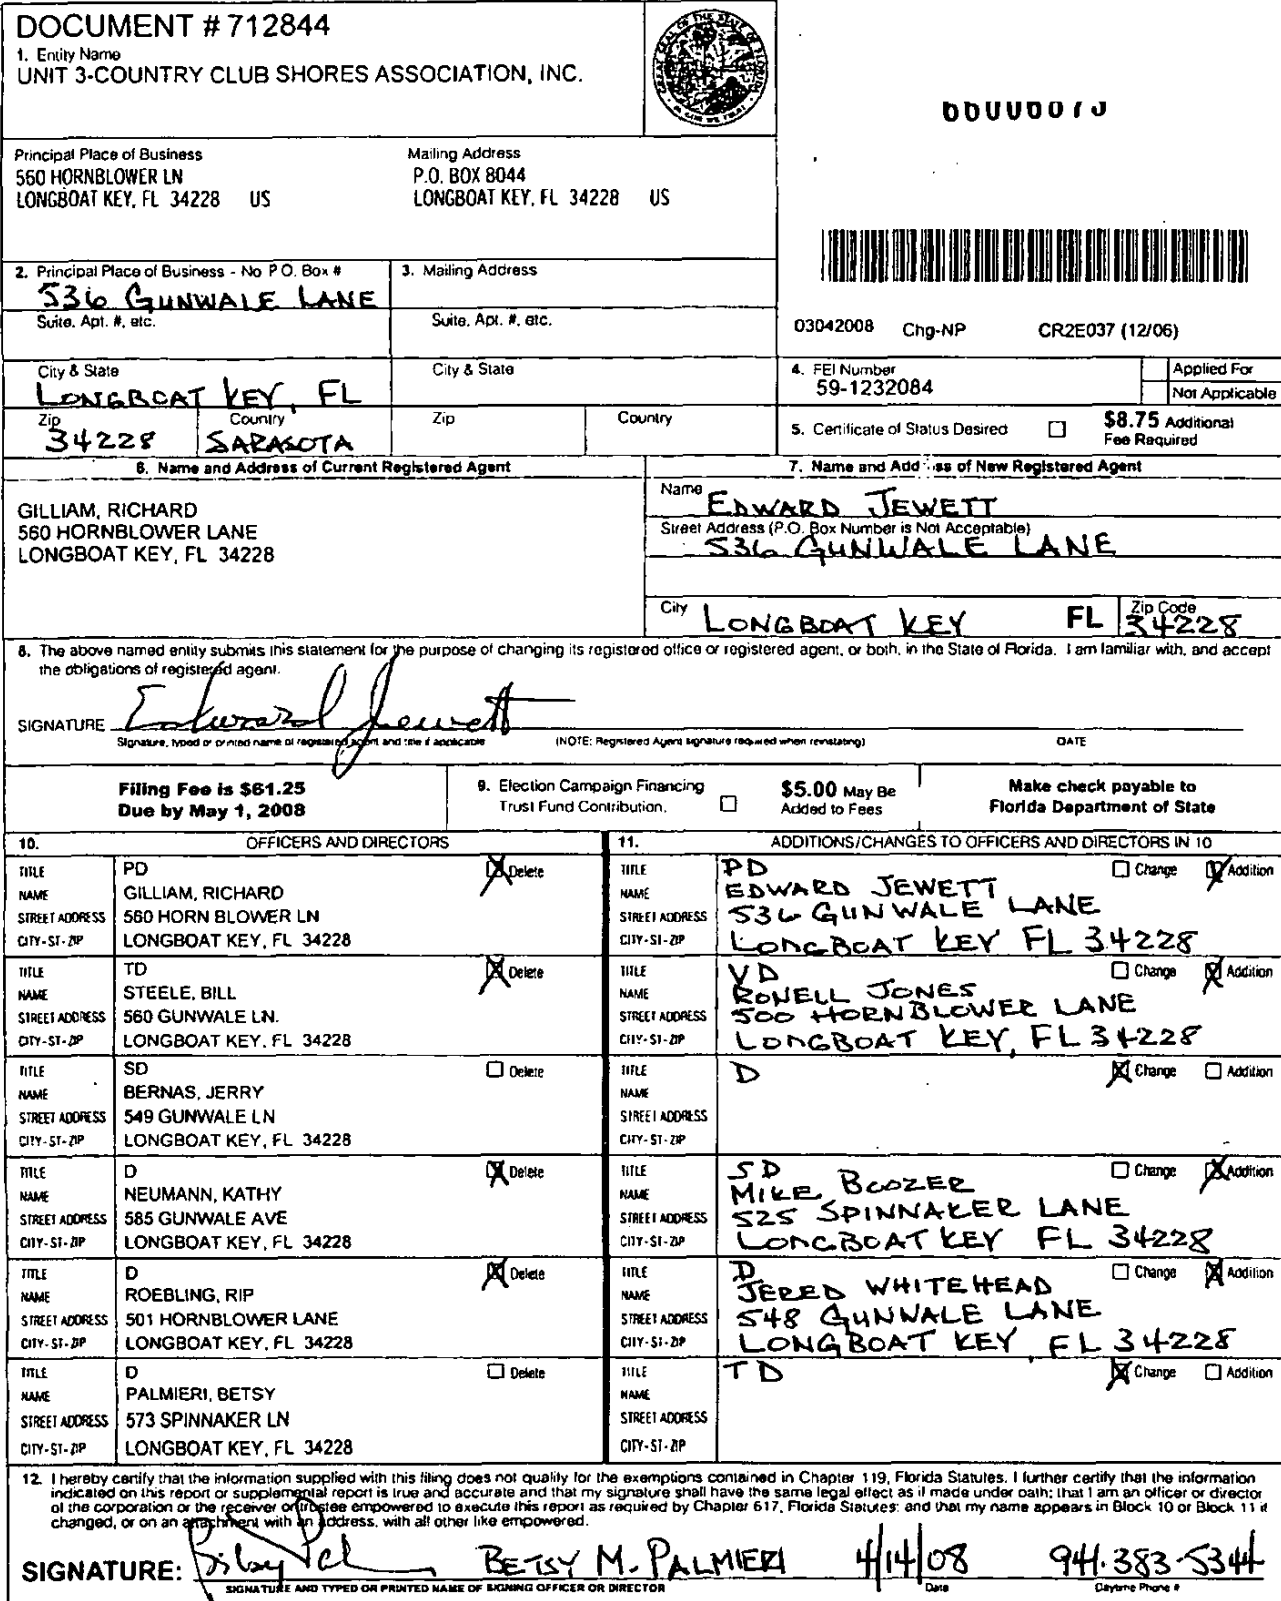 DOCUMENT # 712844
1. Entity Name
UNIT 3-COUNTRY CLUB SHORES ASSOCIATION, INC.
Principal Place of Business
560 HORNBLOWER LN
LONGBOAT KEY, FL 34228 US
Mailing Address
P.O. BOX 8044
LONGBOAT KEY, FL 34228 US
2. Principal Place of Business - No P.O. Box #
536 GUNWALE LANE
3. Mailing Address
Suite, Apt. #, etc.
Suite, Apt. #, etc.
03042008 Chg-NP CR2E037 (12/06)
City & State
LONGBOAT KEY, FL
City & State
4. FEI Number
59-1232084
Applied For
Not Applicable
Zip
34228
Country
SARASOTA
Zip
Country
5. Certificate of Status Desired
$8.75 Additional
Fee Required
6. Name and Address of Current Registered Agent
GILLIAM, RICHARD
560 HORNBLOWER LANE
LONGBOAT KEY, FL 34228
7. Name and Address of New Registered Agent
Name
EDWARD JEWETT
Street Address (P.O. Box Number is Not Acceptable)
536 GUNWALE LANE
City LONGBOAT KEY FL Zip Code 34228
8. The above named entity submits this statement for the purpose of changing its registered office or registered agent, or both, in the State of Florida. I am familiar with, and accept
the obligations of registered agent.
SIGNATURE Edward Jewett
Signature, typed or printed name of registered agent and title if applicable (NOTE: Registered Agent signature required when reinstating) DATE
Filing Fee is $61.25
Due by May 1, 2008
9. Election Campaign Financing
Trust Fund Contribution.
$5.00 May Be
Added to Fees
Make check payable to
Florida Department of State
10. OFFICERS AND DIRECTORS
11. ADDITIONS/CHANGES TO OFFICERS AND DIRECTORS IN 10
TITLE PD Delete
NAME GILLIAM, RICHARD
STREET ADDRESS 560 HORN BLOWER LN
CITY-ST-ZIP LONGBOAT KEY, FL 34228
TITLE PD Change Addition
NAME EDWARD JEWETT
STREET ADDRESS 536 GUNWALE LANE
CITY-ST-ZIP LONGBOAT KEY FL 34228
TITLE TD Delete
NAME STEELE, BILL
STREET ADDRESS 560 GUNWALE LN.
CITY-ST-ZIP LONGBOAT KEY, FL 34228
TITLE VD Change Addition
NAME RONELL JONES
STREET ADDRESS 500 HORNBLOWER LANE
CITY-ST-ZIP LONGBOAT KEY, FL 34228
TITLE SD Delete
NAME BERNAS, JERRY
STREET ADDRESS 549 GUNWALE LN
CITY-ST-ZIP LONGBOAT KEY, FL 34228
TITLE D Change Addition
NAME
STREET ADDRESS
CITY-ST-ZIP
TITLE D Delete
NAME NEUMANN, KATHY
STREET ADDRESS 585 GUNWALE AVE
CITY-ST-ZIP LONGBOAT KEY, FL 34228
TITLE SD Change Addition
NAME MIKE BOOZER
STREET ADDRESS 525 SPINNAKER LANE
CITY-ST-ZIP LONGBOAT KEY FL 34228
TITLE D Delete
NAME ROEBLING, RIP
STREET ADDRESS 501 HORNBLOWER LANE
CITY-ST-ZIP LONGBOAT KEY, FL 34228
TITLE D Change Addition
NAME JERED WHITEHEAD
STREET ADDRESS 548 GUNWALE LANE
CITY-ST-ZIP LONGBOAT KEY, FL 34228
TITLE D Delete
NAME PALMIERI, BETSY
STREET ADDRESS 573 SPINNAKER LN
CITY-ST-ZIP LONGBOAT KEY, FL 34228
TITLE TD Change Addition
NAME
STREET ADDRESS
CITY-ST-ZIP
12. I hereby certify that the information supplied with this filing does not qualify for the exemptions contained in Chapter 119, Florida Statutes. I further certify that the information
indicated on this report or supplemental report is true and accurate and that my signature shall have the same legal effect as if made under oath; that I am an officer or director
of the corporation or the receiver or trustee empowered to execute this report as required by Chapter 617, Florida Statutes; and that my name appears in Block 10 or Block 11 if
changed, or on an attachment with an address, with all other like empowered.
SIGNATURE: BETSY M. PALMIERI 4/14/08 941-383-5344
SIGNATURE AND TYPED OR PRINTED NAME OF SIGNING OFFICER OR DIRECTOR Date Daytime Phone #